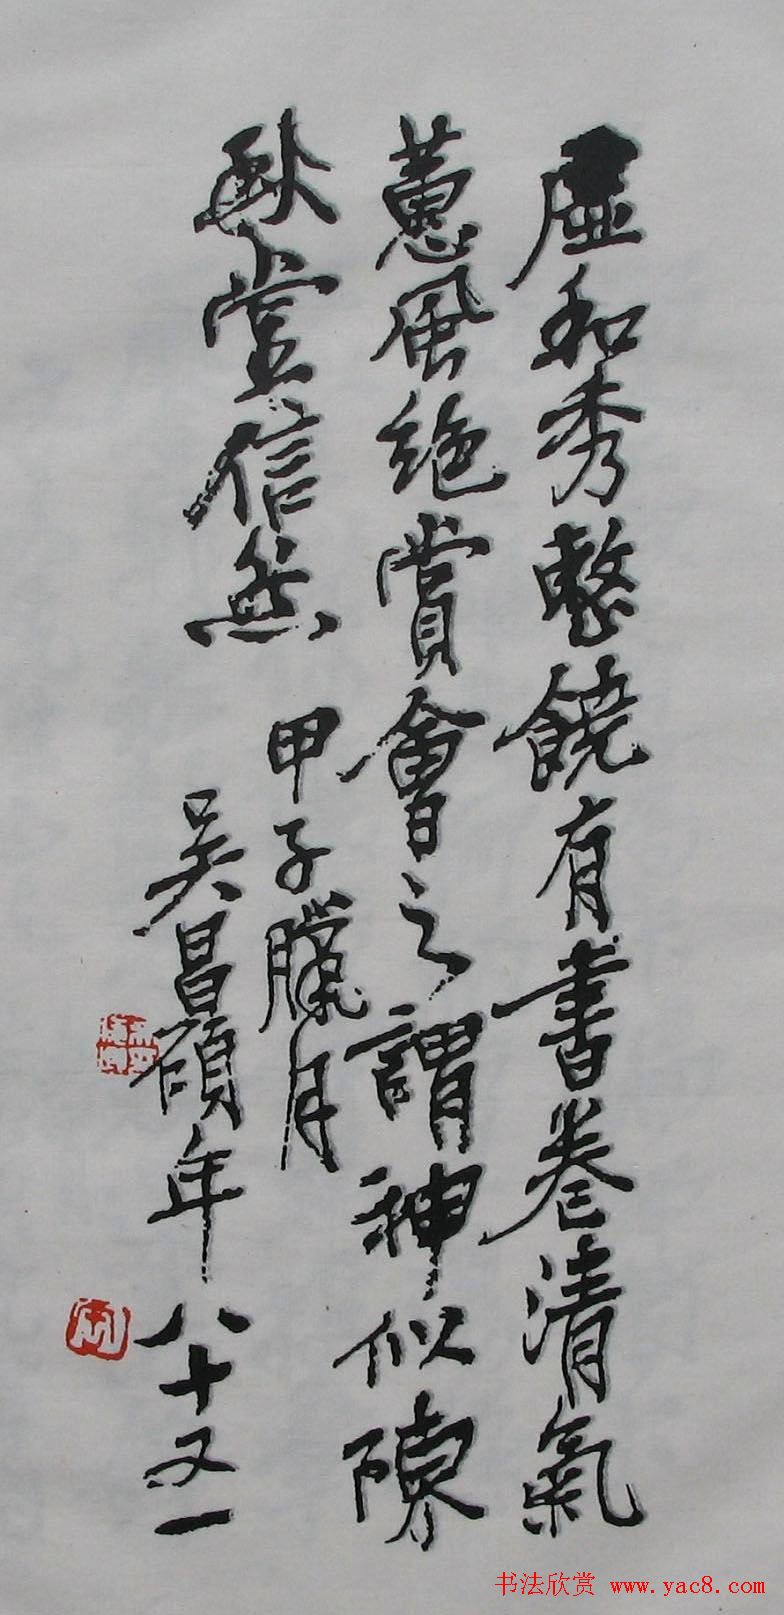 虛和秀整饒有書卷清氣
蕙風絶賞會之謂神似陳
秋堂信然
甲子臘月
吳昌碩年八十又一
书法欣赏 www.yac8.com